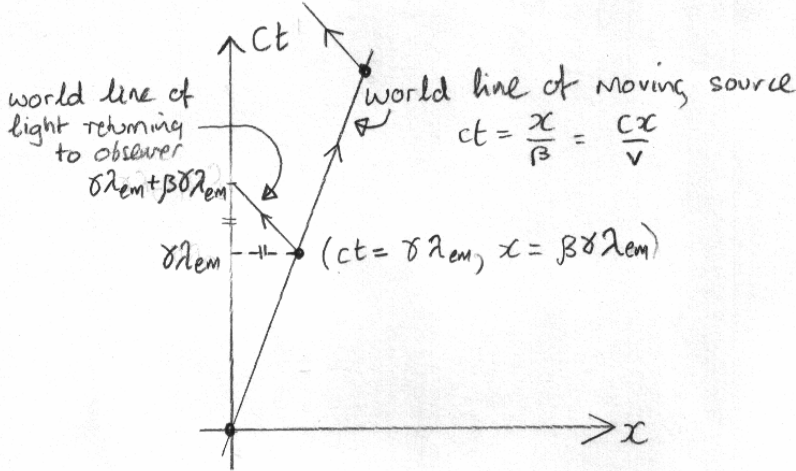 ct
world line of
light returning
to observer
world line of moving source
ct = x/β = cx/v
γλem+βγλem
γλem
(ct = γλem, x = βγλem)
x